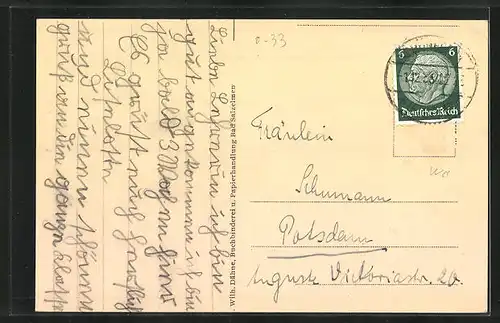 Liebe Lehrerin ich bin
gut angekommen ich bin
ja bald 3 Wochen hier
Es grüßt euch herzlich
Liselotte
und einen schönen
gruß an die ganze Klasse
Wilh. Dähne, Buchbinderei u. Papierhandlung Bad Salzelmen
0-33
6 6
Deutsches Reich
Fräulein
Schumann
Potsdam
Auguste Victoriastr. 20.